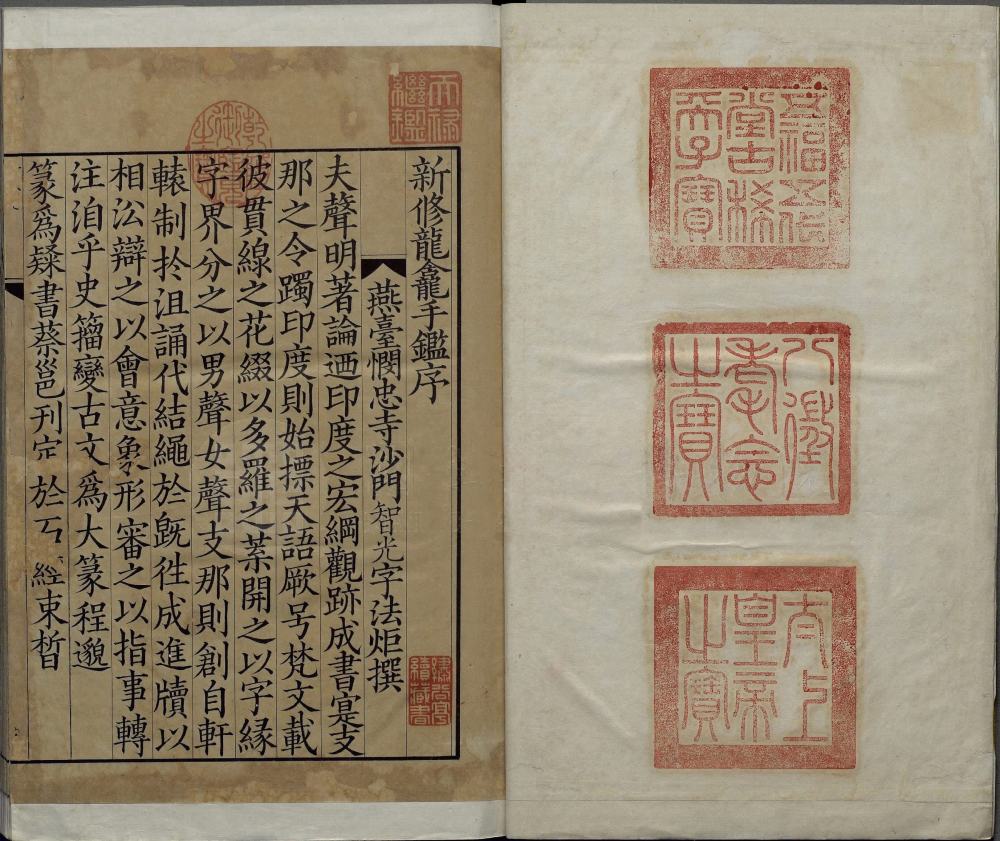 五福五代
堂古稀
天子寶
八徵
耄念
之寶
太上
皇帝
之寶
天祿
繼鑑
乾隆
御覽
之寶
新修龍龕手鑑序
燕臺憫忠寺沙門智光字法炬撰
夫聲明著論迺印度之宏綱觀跡成書寔支
那之令躅印度則始摽天語厥号梵文載
彼貫線之花綴以多羅之葉開之以字緣
字界分之以男聲女聲支那則創自軒
轅制於沮誦代結繩於旣徃成進牘以
相㳂辯之以會意象形審之以指事轉
注洎乎史籀變古文爲大篆程邈
篆爲隸書蔡邕刊定於石經束晳